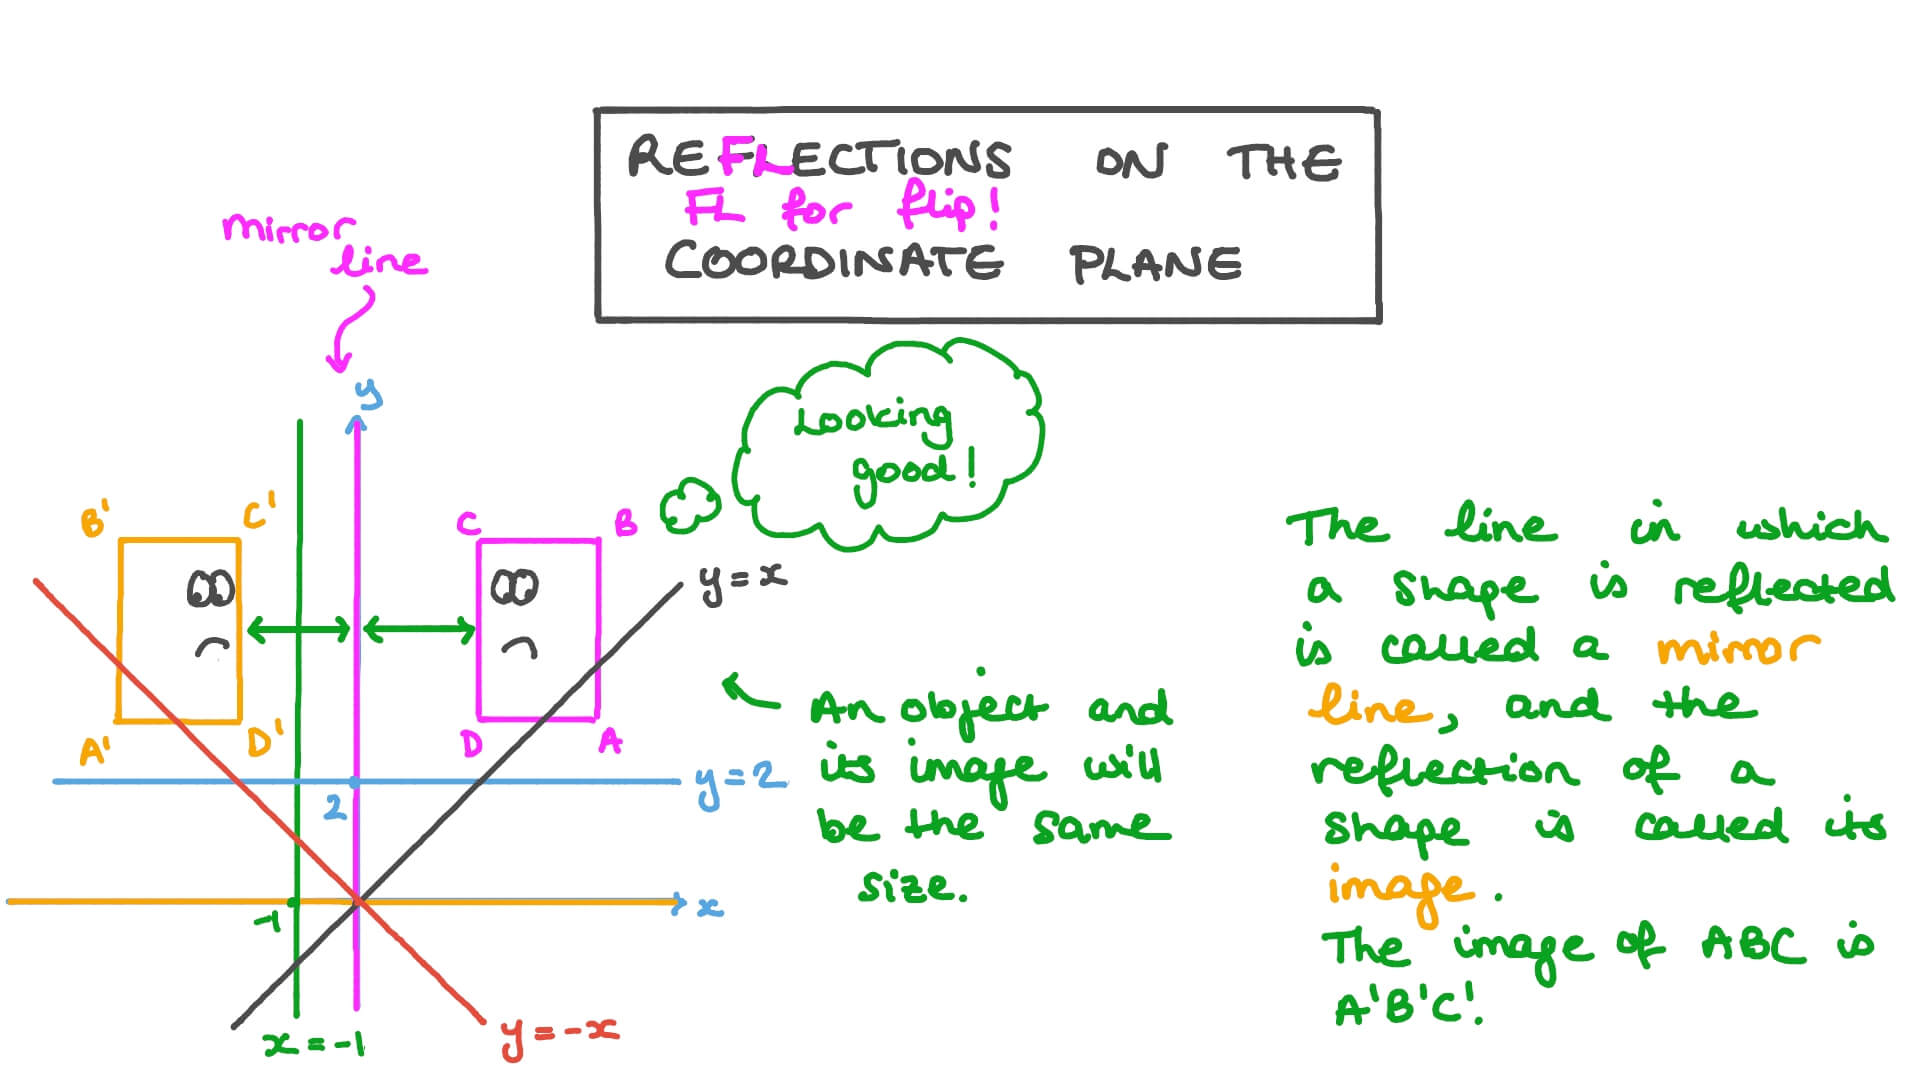 REFLECTIONS ON THE
FL for flip!
COORDINATE PLANE
mirror
line
y
Looking
good!
B'
C'
C
B
y=x
A'
D'
D
A
y=2
2
x
-1
x=-1
y=-x
An object and
its image will
be the same
size.
The line in which
a shape is reflected
is called a mirror
line, and the
reflection of a
shape is called its
image.
The image of ABC is
A'B'C'.